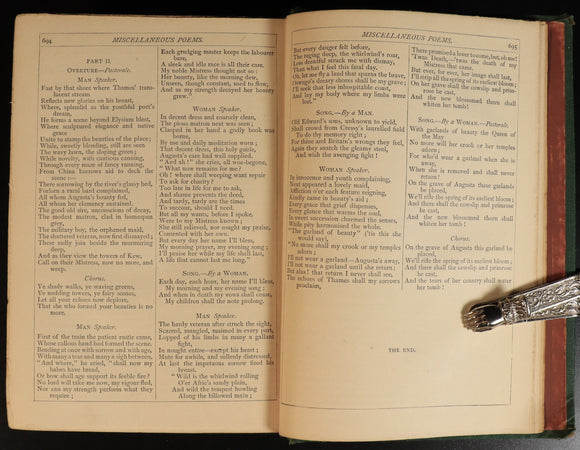 694
MISCELLANEOUS POEMS.
PART II
OVERTURE—Pastorale.
MAN SPEAKER.
Fast by that shore where Thames' translucent stream
Reflects new glories on his breast,
Where, splendid as the youthful poet's dream,
He forms a scene beyond Elysium blest,
Where sculptured elegance and native grace
Unite to stamp the beauties of the place;
While, sweetly blending, still are seen
The wavy lawn, the sloping green;
While novelty, with cautious cunning,
Through every maze of fancy running,
From China borrows aid to deck the scene:—
There sorrowing by the river's glassy bed,
Forlorn a rural bard complained,
All whom Augusta's bounty fed,
All whom her clemency sustained.
The good old sire, unconscious of decay,
The modest matron, clad in homespun gray,
The military boy, the orphaned maid,
The shattered veteran, now first dismayed;
These sadly join beside the murmuring deep,
And as they view the towers of Kew,
Call on their Mistress, now no more, and weep.
Chorus.
Ye shady walks, ye waving greens,
Ye nodding towers, ye fairy scenes,
Let all your echoes now deplore,
That she who formed your beauties is no more.
Man Speaker.
First of the train the patient rustic came,
Whose callous hand had formed the scene,
Bending at once with sorrow and with age,
With many a tear and many a sigh between.
"And where," he cried, "shall now my babes have bread,
Or how shall age support its feeble fire?
No lord will take me now, my vigour fled,
Nor can my strength perform what they require;
Each grudging master keeps the labourer bare,
A sleek and idle race is all their care.
My noble Mistress thought not so!
Her bounty, like the morning dew,
Unseen, though constant, used to flow,
And as my strength decayed her bounty grew."
WOMAN Speaker.
In decent dress and coarsely clean,
The pious matron next was seen;
Clasped in her hand a godly book was borne,
By use and daily meditation worn;
That decent dress, this holy guide,
Augusta's care had well supplied.
"And ah!" she cries, all woe-begone,
"What now remains for me?
Oh! where shall weeping want repair
To ask for charity?
Too late in life for me to ask,
And shame prevents the deed,
And tardy, tardy are the times
To succour, should I need.
But all my wants, before I spoke,
Were to my Mistress known;
She still relieved, nor sought my praise,
Contented with her own.
But every day her name I'll bless,
My morning prayer, my evening song;
I'll praise her while my life shall last,
A life that cannot last me long."
SONG.—By a WOMAN.
Each day, each hour, her name I'll bless,
My morning and my evening song;
And when in death my vows shall cease,
My children shall the note prolong.
MAN Speaker.
The hardy veteran after struck the sight,
Scarred, mangled, maimed in every part,
Lopped of his limbs in many a gallant fight,
In nought entire—except his heart;
Mute for awhile, and sullenly distressed,
At last the impetuous sorrow fired his breast.
"Wild is the whirlwind rolling
O'er Afric's sandy plain,
And wild the tempest howling
Along the billowed main;
MISCELLANEOUS POEMS.
695
But every danger felt before,
The raging deep, the whirlwind's roar,
Less dreadful struck me with dismay,
Than what I feel this fatal day.
Oh, let me fly a land that spurns the brave,
Oswego's dreary shores shall be my grave;
I'll seek that less inhospitable coast,
And lay my body where my limbs were lost."
SONG.—By a MAN.
Old Edward's sons, unknown to yield,
Shall crowd from Cressy's laurelled field
To do thy memory right;
For thine and Britain's wrongs they feel,
Again they snatch the gleamy steel,
And wish the avenging fight!
WOMAN Speaker.
In innocence and youth complaining,
Next appeared a lovely maid,
Affliction o'er each feature reigning,
Kindly came in beauty's aid;
Every grace that grief dispenses,
Every glance that warms the soul,
In sweet succession charmed the senses,
While pity harmonised the whole.
"The garland of beauty" ('tis thus she would say),
"No more shall my crook or my temples adorn;
I'll not wear a garland—Augusta's away,
I'll not wear a garland until she return;
But alas! that return I never shall see,
The echoes of Thames shall my sorrows proclaim,
There promised a lover to come, but, oh me!
'Twas Death,—'twas the death of my Mistress that came.
But ever, for ever, her image shall last,
I'll strip all the spring of its earliest bloom;
On her grave shall the cowslip and primrose be cast,
And the new blossomed thorn shall whiten her tomb!
SONG.—By a WOMAN.—Pastorale.
With garlands of beauty the Queen of the May
No more will her crook or her temples adorn;
For who'd wear a garland when she is away,
When she is removed and shall never return?
On the grave of Augusta these garlands be placed,
We'll rifle the spring of its earliest bloom;
And there shall the cowslip and primrose be cast,
And the new blossomed thorn shall whiten her tomb!
Chorus.
On the grave of Augusta this garland be placed,
We'll rifle the spring of its earliest bloom;
And there shall the cowslip and primrose be cast,
And the tears of her country shall water her tomb!
THE END.